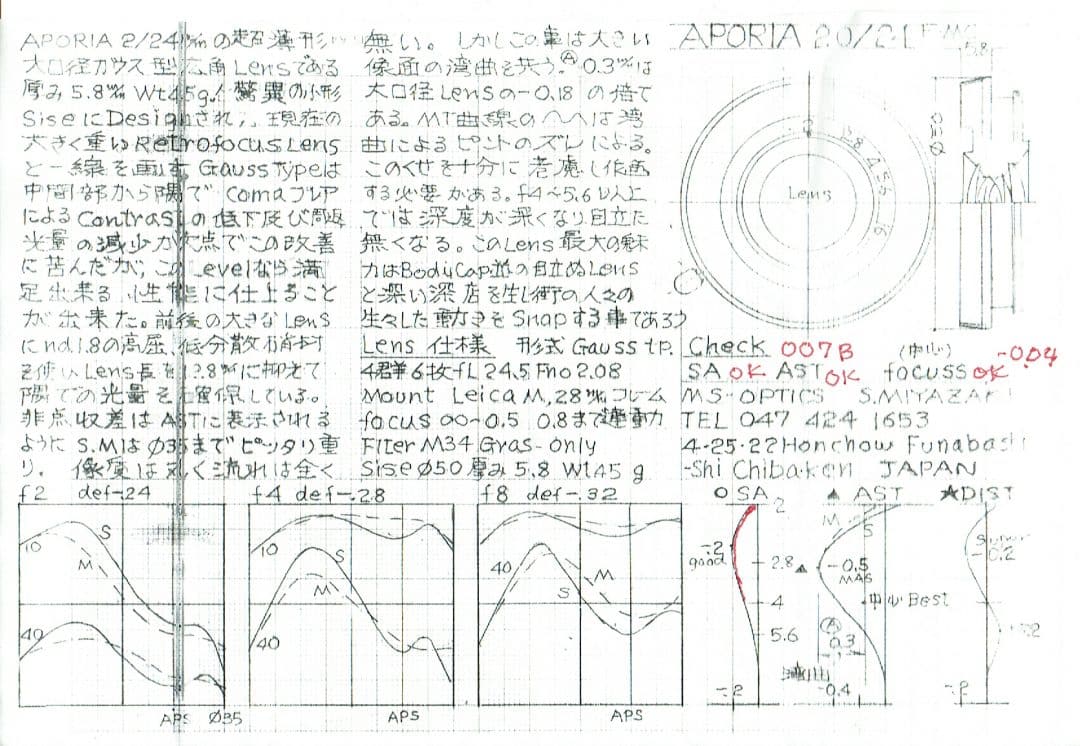 APORIA 2/24㎜の超薄形
大口径ガウス型広角Lensである
厚み5.8㎜ Wt45g.! 驚異の小形
SiseにDesignされ、現在の
大きく重いRetrofocusLens
と一線を画す GaussTypeは
中間部から隅で Comaフレア
によるContrastの低下及び周辺
光量の減少が欠点でこの改善
に苦んだが,このLevelなら満
足出来る 性能に仕上ること
が出来た。前後の大きなLens
にnd1.8の高屈、低分散硝材
を使いLens長を13.8㎜に抑えて
隅での光量を確保している。
非点収差はASTに表示される
ように S.MはØ35までピッタリ重
り。像度は丸く流れは全く
無い。しかしこの事は大きい
像面の湾曲を共う。Ⓐ0.3㎜は
大口径Lensの-0.18の倍で
ある。MT曲線のへへは湾
曲によるピントのズレによる。
このくせを十分に考慮し作画
する必要がある。f4~5.6以上
では深度が深くなり目立た
無くなる。このLens最大の魅
力はBodyCap並の目立ぬLens
と深い深度を生し街の人々の
生々した動きをSnapする事であろう
Lens 仕様 形式 Gauss tp.
4群6枚 fL 24.5 Fno 2.08
Mount Leica M, 28㎜フレーム
focus ∞-0.5 0.8まで連動
Filter M34 Gras-only
Sise Ø50 厚み 5.8 Wt45 g
APORIA 2.0/24 F.MC
5.8
Ø50
2 2.8 4 5.6 16
Lens
Check 007B (中心) -0.04
SA OK AST OK focuss OK
MS-OPTICS S.MIYAZAKI
TEL 047 424 1653
4-25-22 Honchow Funabashi
-Shi Chibaken JAPAN
f2 def-.24
10
S
M
40
APS Ø35
f4 def-.28
10
S
M
40
APS
f8 def-.32
40
M
S
APS
○ SA
2
-.2
good
2.8
4
5.6
-.2
▲ AST
M
S
-0.5
MAG
中心Best
Ⓐ
0.3
-0.4
★DIST
-0.2
-.2
-.2